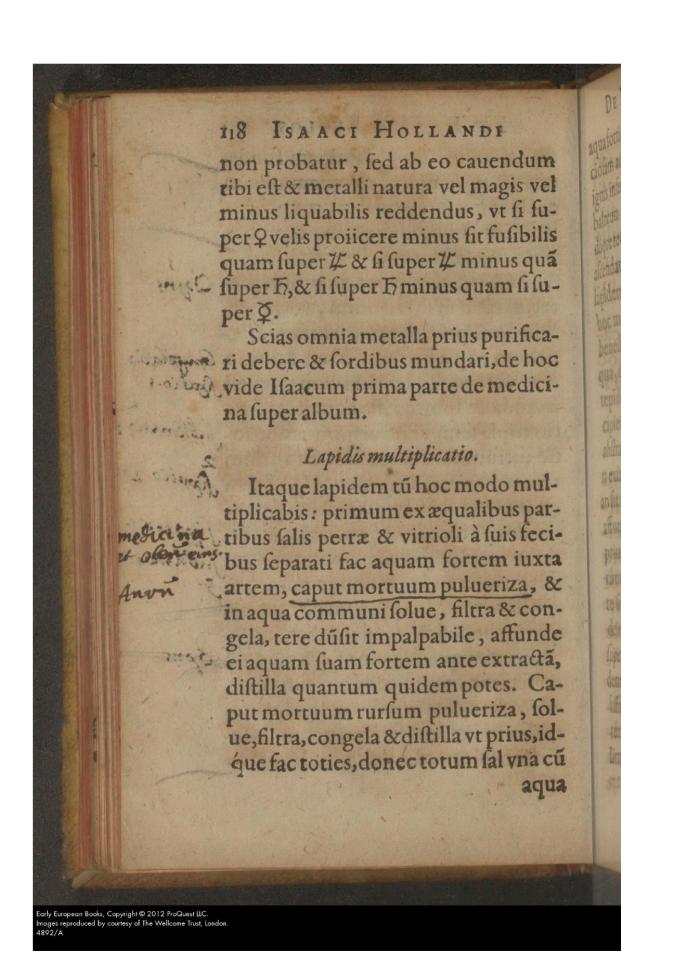 118 ISAACI HOLLANDI
non probatur, ſed ab eo cauendum
tibi eſt & metalli natura vel magis vel
minus liquabilis reddendus, vt ſi ſu-
per ♀ velis proiicere minus ſit fuſibilis
quam ſuper ♃ & ſi ſuper ♃ minus quã
ſuper ♄, & ſi ſuper ♄ minus quam ſi ſu-
per ☿.
Scias omnia metalla prius purifica-
ri debere & ſordibus mundari, de hoc
vide Iſaacum prima parte de medici-
na ſuper album.
Lapidis multiplicatio.
Itaque lapidem tũ hoc modo mul-
tiplicabis: primum ex æqualibus par-
medicina
tibus ſalis petræ & vitrioli à ſuis feci-
et
bus ſeparati fac aquam fortem iuxta
artem, caput mortuum pulueriza, &
in aqua communi ſolue, filtra & con-
gela, tere dũ ſit impalpabile, affunde
ei aquam ſuam fortem ante extractã,
diſtilla quantum quidem potes. Ca-
put mortuum rurſum pulueriza, ſol-
ue, filtra, congela & diſtilla vt prius, id-
q́ue fac toties, donec totum ſal vna cũ
aqua
De
Early European Books, Copyright © 2012 ProQuest LLC.
Images reproduced by courtesy of The Wellcome Trust, London.
4892/A